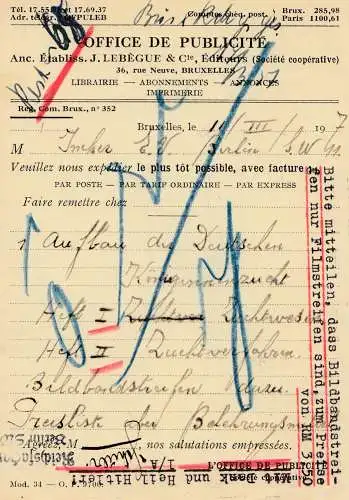 Tél. 17.55. et 17.69.37 Compte chèq. post. Brux. 285,98
Adr. télégr. OFPULEB Paris 1100,61
OFFICE DE PUBLICITÉ
Anc. Établiss. J. LEBÈGUE & Cie, Éditeurs (Société coopérative)
36, rue Neuve, BRUXELLES
LIBRAIRIE — ABONNEMENTS — ANNONCES
IMPRIMERIE
Reg. Com. Brux., n° 352
Bruxelles, le III 1937
M Imker Berlin S.W. 11
Veuillez nous expédier le plus tôt possible, avec facture
PAR POSTE — PAR TARIF ORDINAIRE — PAR EXPRESS
Faire remettre chez
1 Aufbau der Deutschen
Königinnenzucht
Heft I Züchterwesen
Heft II Zuchtverfahren
Bildbandstreifen dazu.
Preisliste der Belehrungsm
Agréez, M nos salutations empressées.
I/A L'OFFICE DE PUBLICITÉ
Société coopérative
Mod. 34 — O. P. 9706.
Bitte mitteilen, dass Bildbandstrei-
fen nur Filmstreifen sind, zum Preise
von RM 3.20
Dank und Heil Hitler!